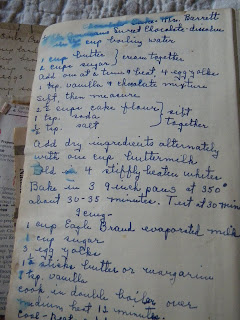 Chocolate Cake - Mrs. Barrett
Sweet Chocolate - dissolve
in ½ cup boiling water
1 cup butter } cream together
2 cups sugar
Add one at a time & beat, 4 egg yolks
1 tsp. vanilla & chocolate mixture
Sift, then measure
2 ½ cups cake flour } sift
1 tsp. soda together
½ tsp. salt
Add dry ingredients alternately
with one cup buttermilk
Fold in 4 stiffly beaten whites
Bake in 3 9-inch pans at 350°
about 30-35 minutes. Test at 30 min
Icing -
1 cup Eagle Brand evaporated milk
1 cup sugar
3 egg yolks
1 ½ sticks butter or margarine
1 tsp. vanilla
cook in double boiler over
medium heat 12 minutes.